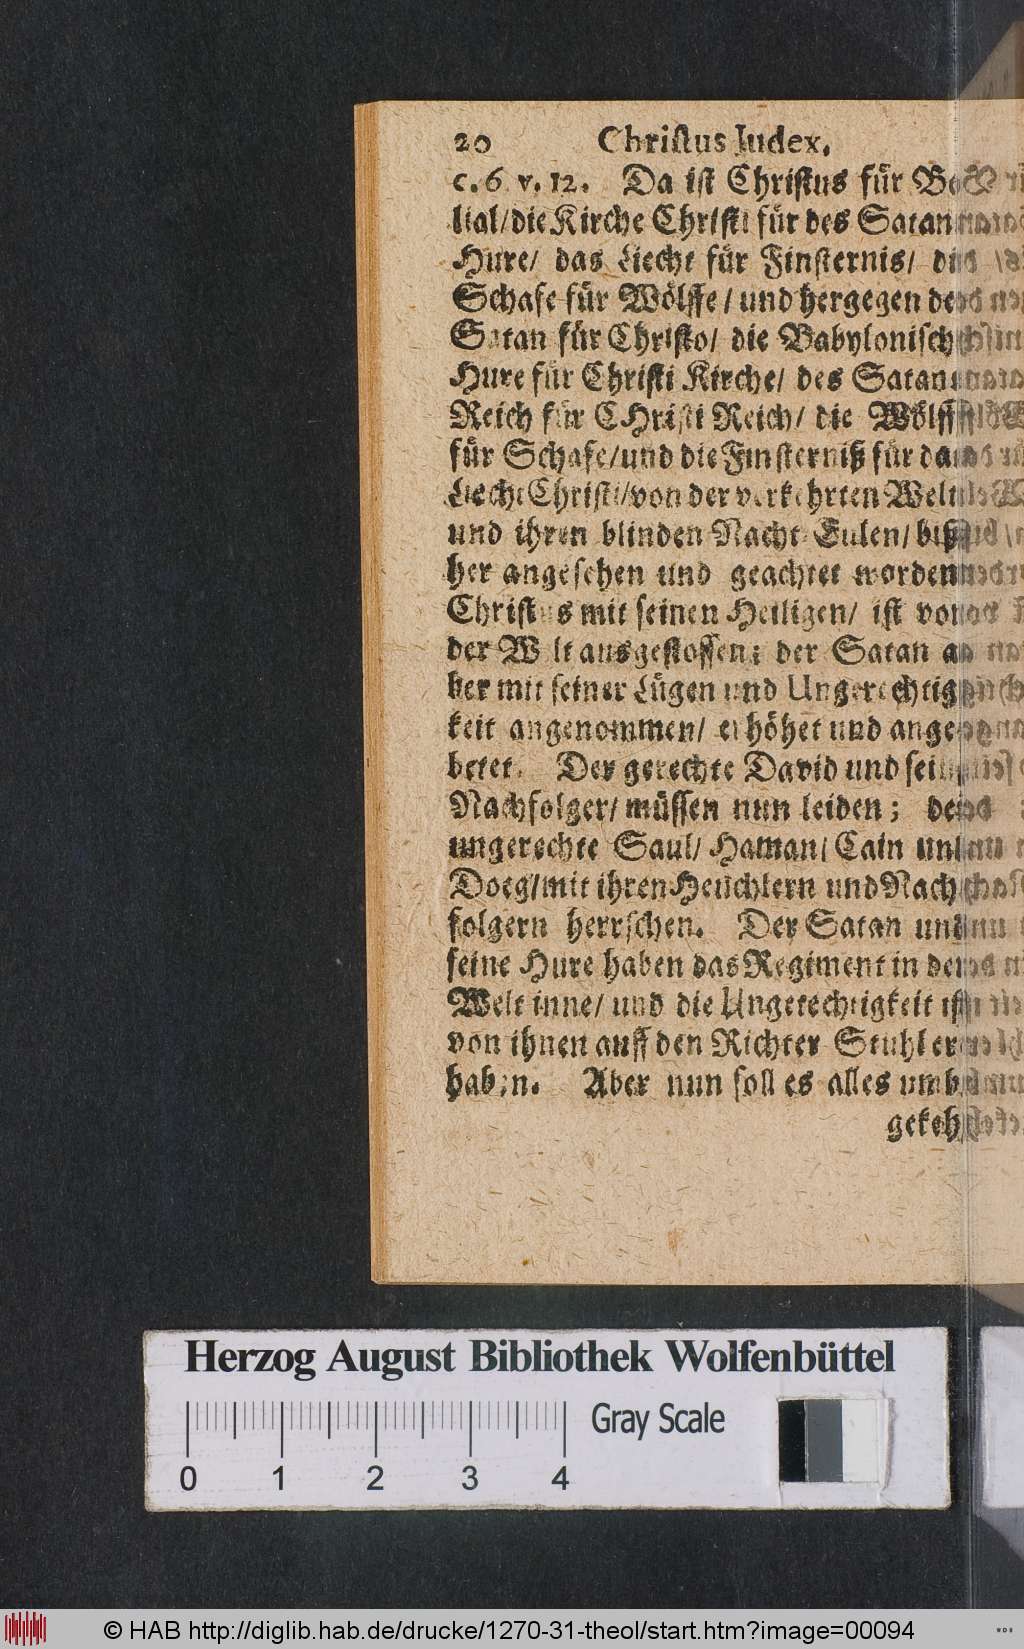 20 Christus Iudex.
c. 6 v. 12. Da ist Christus für
lial/ die Kirche Christi für des Satan
Hure/ das Liecht für Finsternis/ die
Schafe für Wölffe/ und hergegen den
Satan für Christo/ die Babylonisch
Hure für Christi Kirche/ des Satans
Reich für CHristi Reich/ die Wölff
für Schafe/ und die Finsterniß für das
Liecht Christi/ von der verkehrten Welt
und ihren blinden Nacht-Eulen/ biß
her angesehen und geachtet worden
Christus mit seinen Heiligen/ ist von
der Welt ausgestossen: der Satan a
ber mit seiner Lügen und Ungerechtig
keit angenommen/ erhöhet und ange
betet. Der gerechte David und sein
Nachfolger/ müssen nun leiden; der
ungerechte Saul/ Haman/ Cain und
Doeg/ mit ihren Heuchlern und Nach
folgern herrschen. Der Satan und
seine Hure haben das Regiment in der
Welt inne/ und die Ungerechtigkeit ist
von ihnen auff den Richter Stuhl er
haben. Aber nun soll es alles umb
gekeh
Herzog August Bibliothek Wolfenbüttel
Gray Scale
0 1 2 3 4
© HAB http://diglib.hab.de/drucke/1270-31-theol/start.htm?image=00094